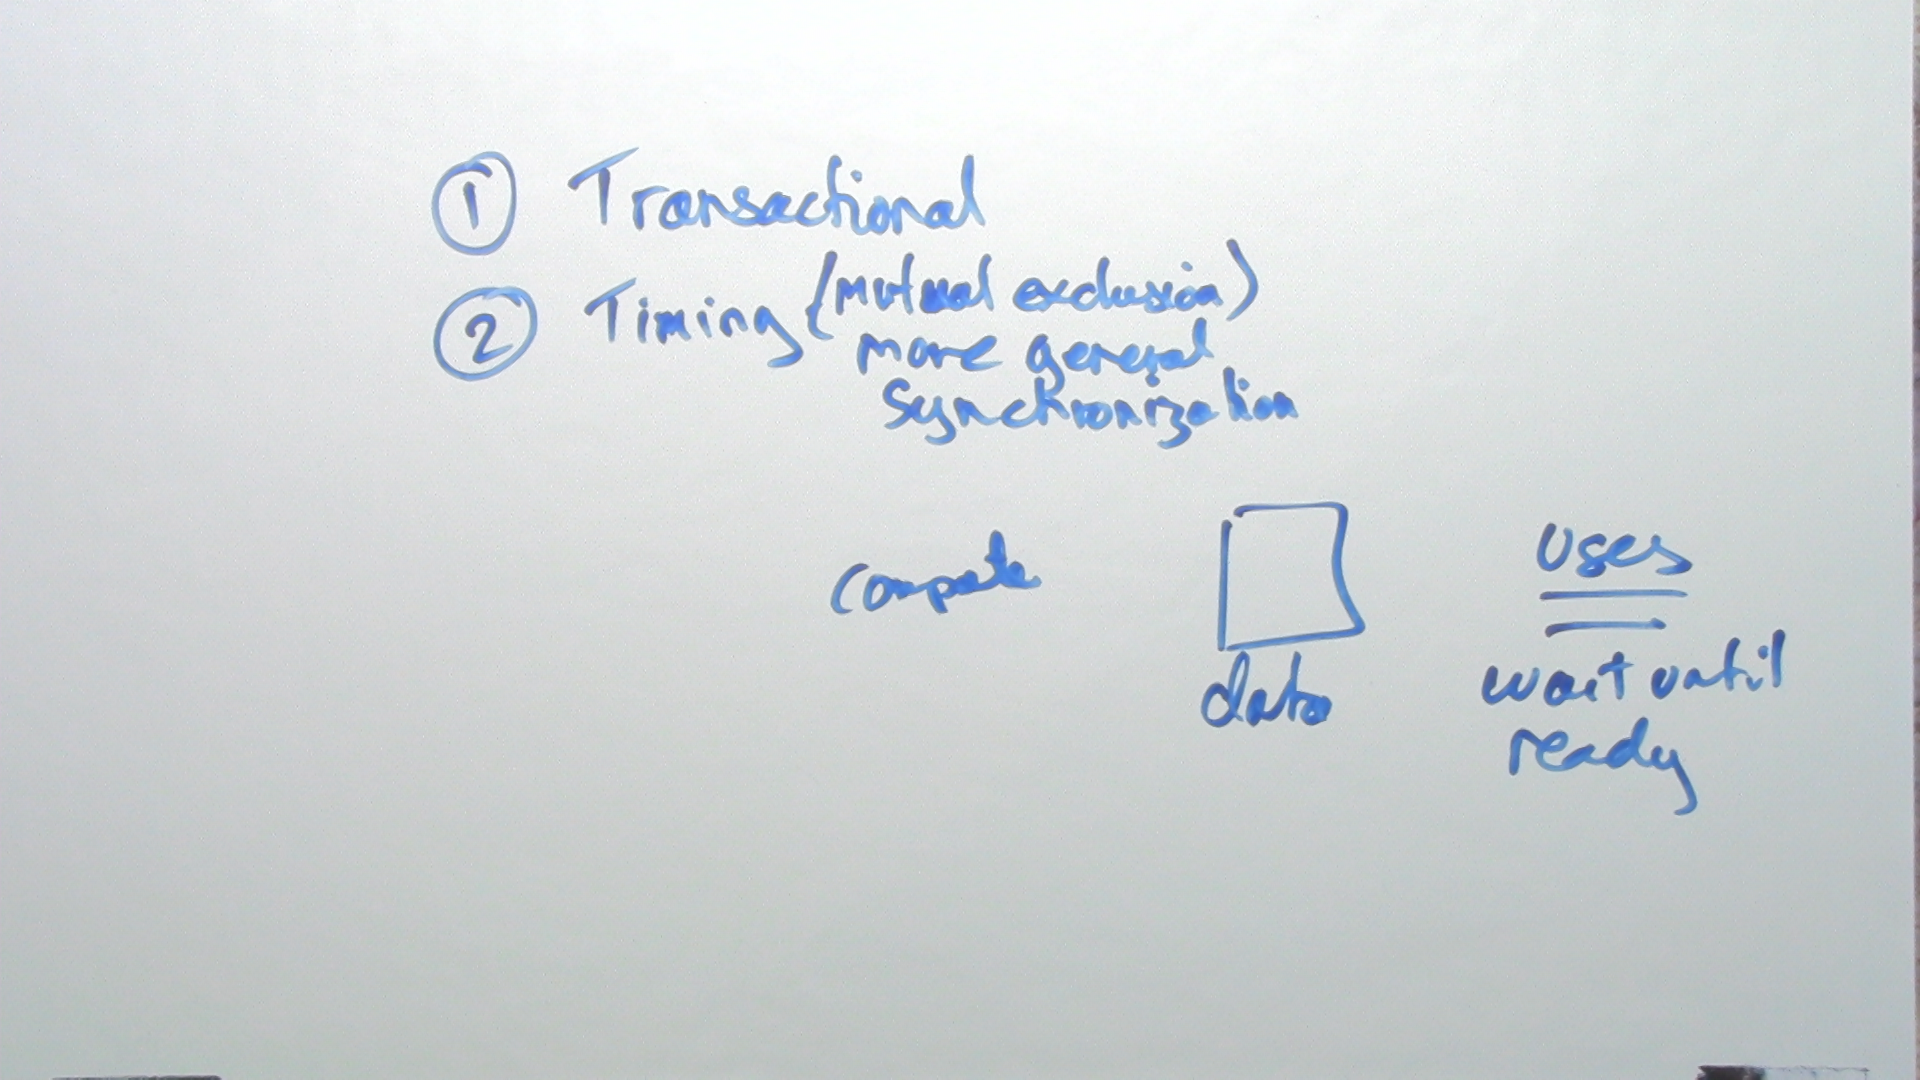 ① Transactional
② Timing (mutual exclusion)
more general
synchronization
compute
data
uses
wait until
ready